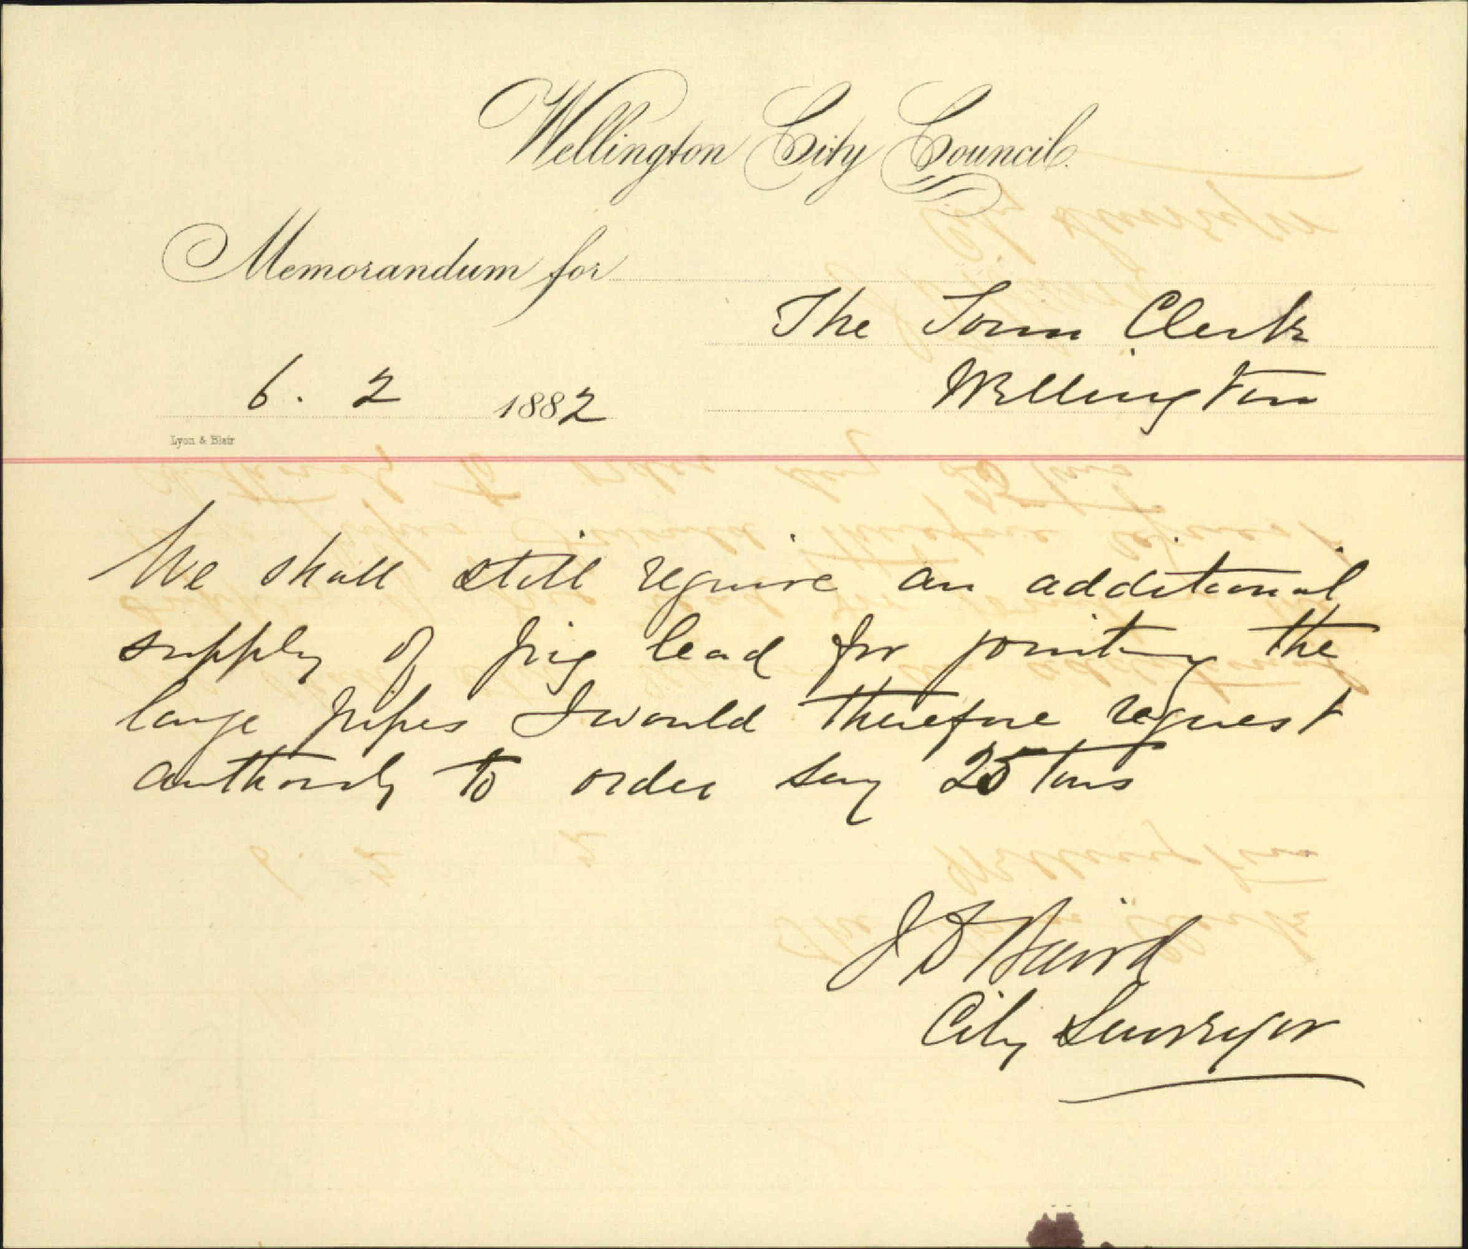 Wellington City Council.
Memorandum for
The Town Clerk
Wellington
6. 2 1882
Lyon & Blair
We shall still require an additional
supply of pig lead for jointing the
large pipes I would therefore request
authority to order say 25 tons
J D Baird
City Surveyor